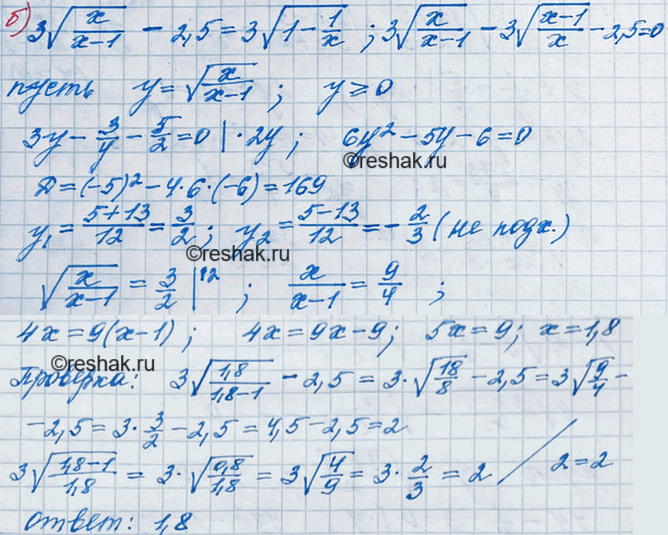 б) 3√(x/(x-1)) - 2,5 = 3√(1 - 1/x) ; 3√(x/(x-1)) - 3√((x-1)/x) - 2,5 = 0
пусть y = √(x/(x-1)) ; y ≥ 0
3y - 3/y - 5/2 = 0 | · 2y ; 6y² - 5y - 6 = 0
©reshak.ru
D = (-5)² - 4 · 6 · (-6) = 169
y₁ = (5+13)/12 = 3/2 ; y₂ = (5-13)/12 = -2/3 (не подх.)
©reshak.ru
√(x/(x-1)) = 3/2 |² ; x/(x-1) = 9/4 ;
4x = 9(x-1) ; 4x = 9x - 9 ; 5x = 9 ; x = 1,8
©reshak.ru
Проверка: 3√(1,8/(1,8-1)) - 2,5 = 3 · √(18/8) - 2,5 = 3√(9/4) -
- 2,5 = 3 · 3/2 - 2,5 = 4,5 - 2,5 = 2
3√((1,8-1)/1,8) = 3 · √(0,8/1,8) = 3√(4/9) = 3 · 2/3 = 2 / 2 = 2
©reshak.ru
ответ: 1,8